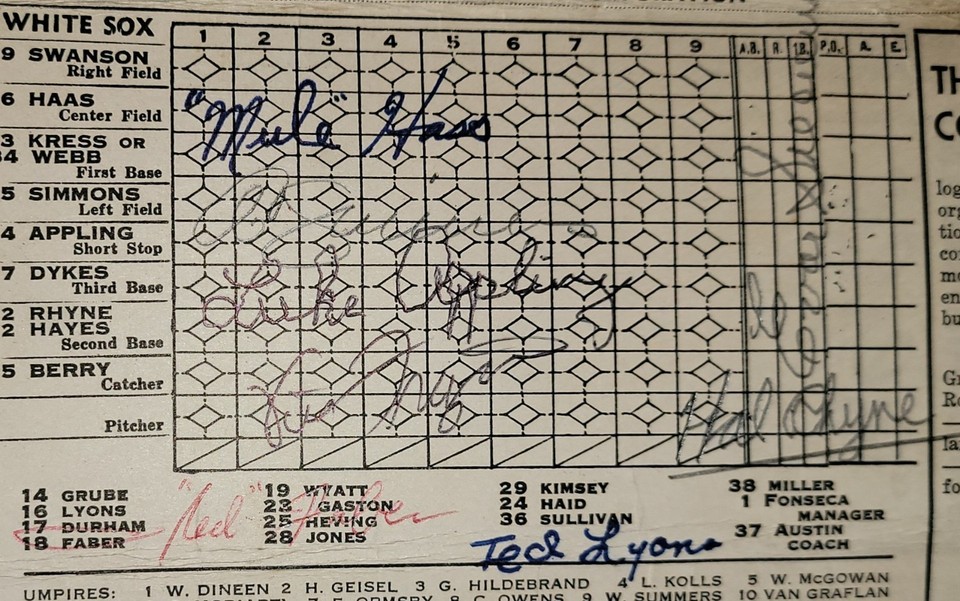 WHITE SOX 1 2 3 4 5 6 7 8 9 A.B. R. 1B. P.O. A. E.
9 SWANSON
Right Field
6 HAAS
Center Field
"Mule" Haas
3 KRESS OR
34 WEBB
First Base
5 SIMMONS
Left Field
Al Simmons
4 APPLING
Short Stop
7 DYKES
Third Base
Luke Appling
2 RHYNE
2 HAYES
Second Base
5 BERRY
Catcher
Hal Rhyne
Pitcher
14 GRUBE 19 WYATT 29 KIMSEY 38 MILLER
16 LYONS 23 GASTON 24 HAID 1 FONSECA
MANAGER
17 DURHAM 25 HEVING 36 SULLIVAN 37 AUSTIN
18 FABER 28 JONES COACH
"Red" Faber
Ted Lyons
UMPIRES: 1 W. DINEEN 2 H. GEISEL 3 G. HILDEBRAND 4 L. KOLLS 5 W. McGOWAN
7 E. ORMSBY 8 C. OWENS 9 W. SUMMERS 10 VAN GRAFLAN